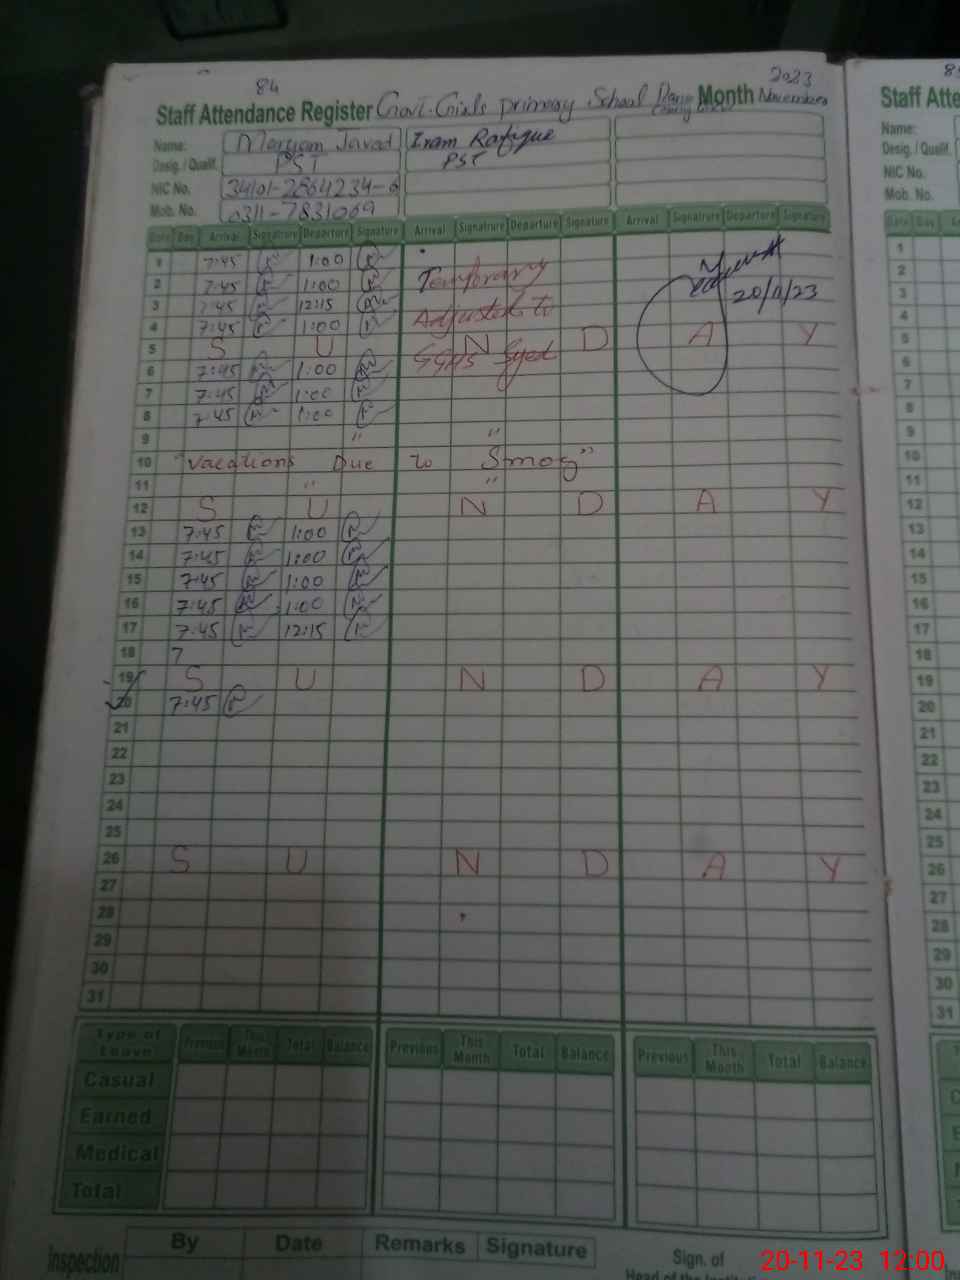 84
2023
Staff Attendance Register Govt. Girls primary School Month November
Name: Maryam Javed Iram Rafique
Desig. / Qualif. PST PST
NIC No. 34101-2864234-6
Mob. No. 0311-7831069
Date Day Arrival Signatrure Departure Signature Arrival Signatrure Departure Signature Arrival Signatrure Departure Signature
1 7:45 1:00
2 7:45 1:00 Temporary 20/11/23
3 7:45 12:15 Adjusted to
4 7:45 1:00
5 S U N D A Y
6 7:45 1:00 GGPS Syed
7 7:45 1:00
8 7:45 1:00
9 " "
10 "Vacations Due to Smog"
11 " "
12 S U N D A Y
13 7:45 1:00
14 7:45 1:00
15 7:45 1:00
16 7:45 1:00
17 7:45 12:15
18 7
19 S U N D A Y
20 7:45
21
22
23
24
25
26 S U N D A Y
27
28
29
30
31
Type of Leave Previous This Month Total Balance Previous This Month Total Balance Previous This Month Total Balance
Casual
Earned
Medical
Total
Inspection By Date Remarks Signature Sign. of
Head of the
20-11-23 12:00
Staff Atte
Name:
Desig. / Qualif.
NIC No.
Mob. No.
Date Day
1
2
3
4
5
6
7
8
9
10
11
12
13
14
15
16
17
18
19
20
21
22
23
24
25
26
27
28
29
30
31